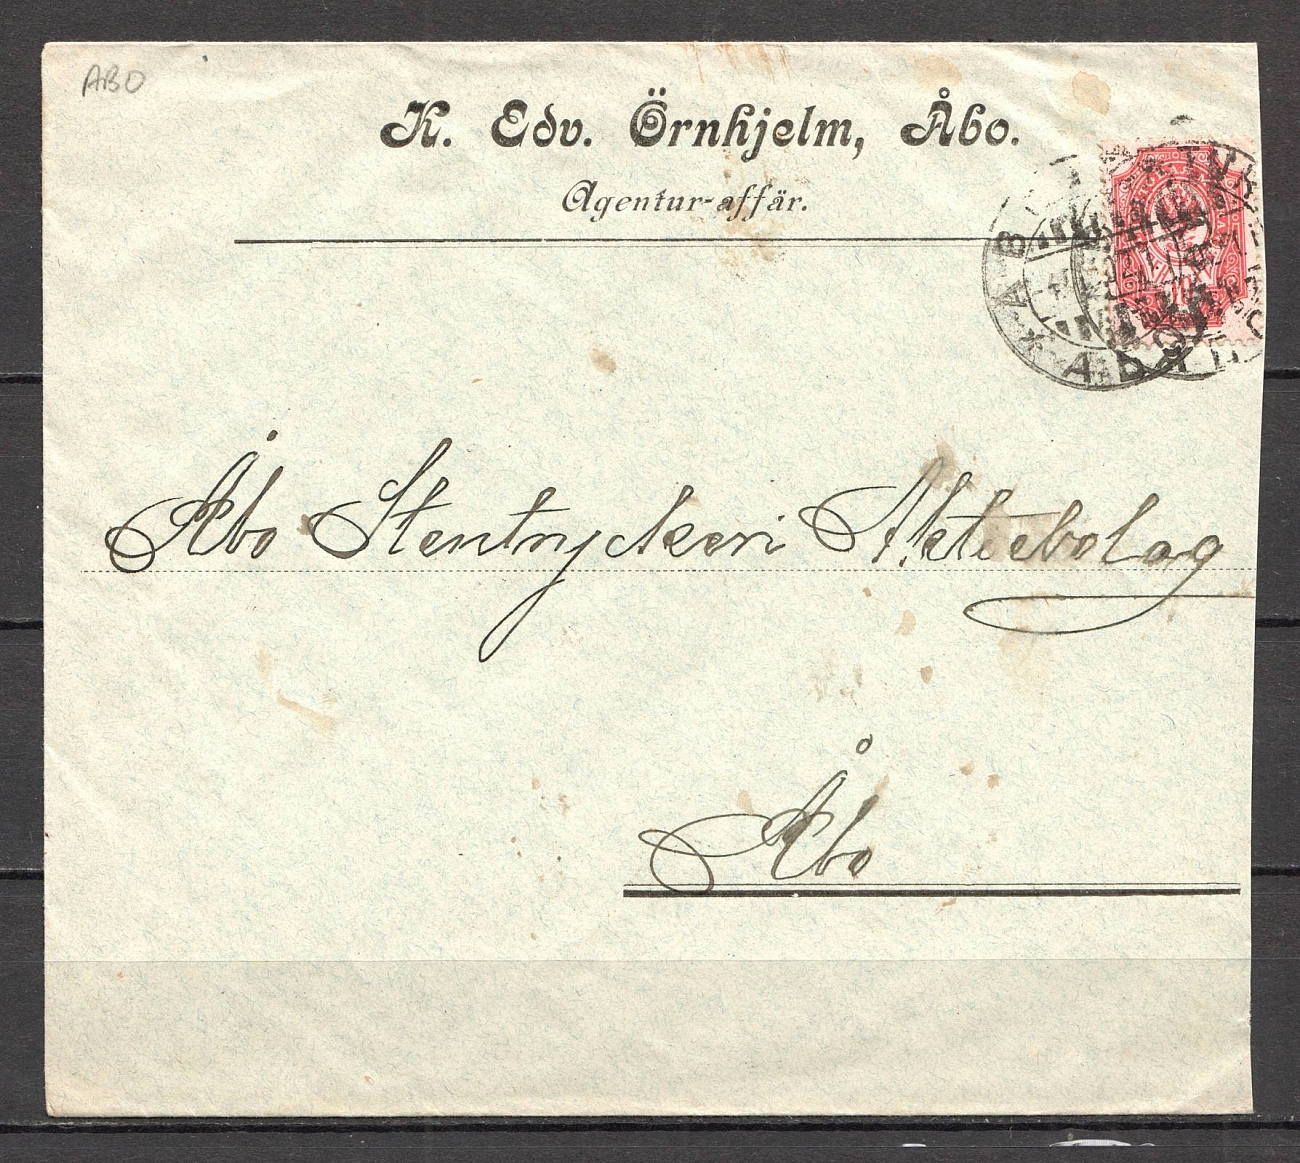 ABO
K. Edv. Örnhjelm, Åbo.
Agentur-affär.
Åbo Stentryckeri Aktiebolag
Åbo